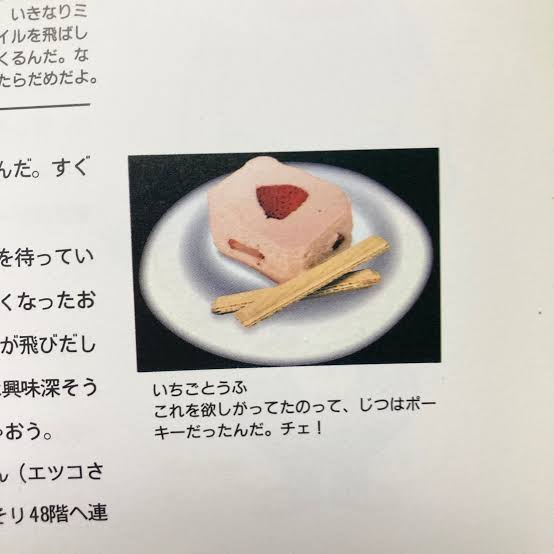 いきなりミ
イルを飛ばし
くるんだ。な
たらだめだよ。
んだ。すぐ
を待ってい
くなったお
が飛びだし
興味深そう
おう。
ん（エツコさ
そり48階へ連
いちごとうふ
これを欲しがってたのって、じつはポー
キーだったんだ。チェ！